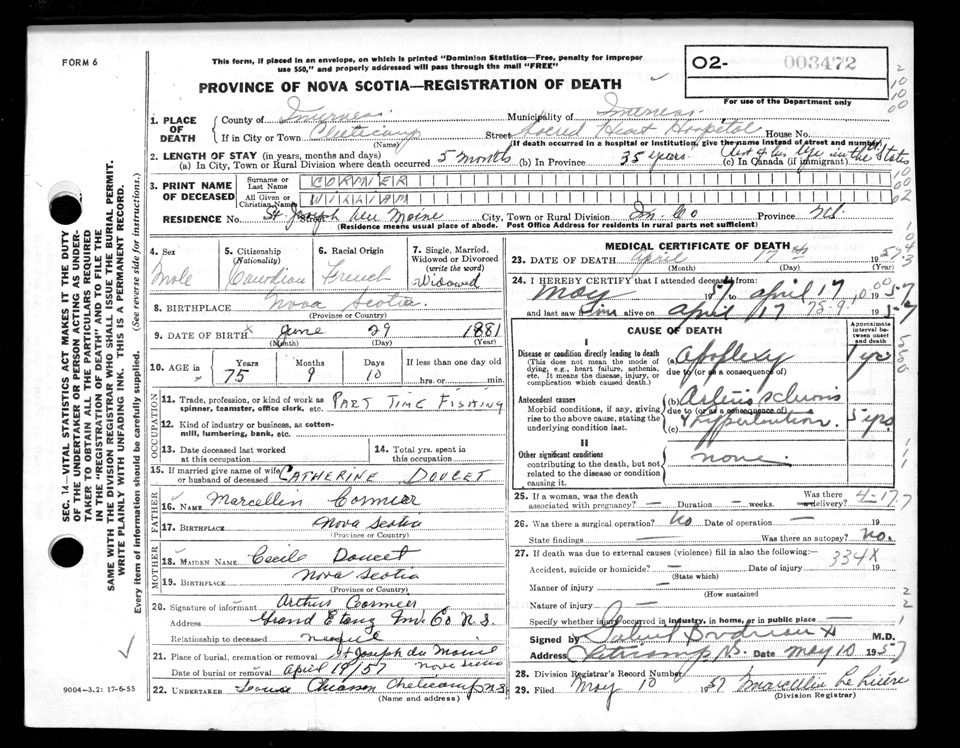 FORM 6
This form, if placed in an envelope, on which is printed "Dominion Statistics—Free, penalty for improper
use $50," and properly addressed will pass through the mail "FREE"
O2- 003472
For use of the Department only
PROVINCE OF NOVA SCOTIA—REGISTRATION OF DEATH
1. PLACE OF DEATH
County of Inverness Municipality of Inverness
If in City or Town Cheticamp Street Sacred Heart Hospital House No.
(Name) (If death occurred in a hospital or institution, give the name instead of street and number)
2. LENGTH OF STAY (in years, months and days)
(a) In City, Town or Rural Division where death occurred 5 months (b) In Province 35 years (c) In Canada (if immigrant) Rest of his life in the States
3. PRINT NAME OF DECEASED
Surname or Last Name CORMIER
All Given or Christian Names WILLIAM
RESIDENCE No. Street St. Joseph du Moine City, Town or Rural Division In. Co Province N.S.
(Residence means usual place of abode. Post Office Address for residents in rural parts not sufficient)
4. Sex Male
5. Citizenship (Nationality) Canadian
6. Racial Origin French
7. Single, Married, Widowed or Divorced (write the word) Widowed
8. BIRTHPLACE Nova Scotia
(Province or Country)
9. DATE OF BIRTH June 29 1881
(Month) (Day) (Year)
10. AGE in Years 75 Months 9 Days If less than one day old hrs. or min.
OCCUPATION
11. Trade, profession, or kind of work as
spinner, teamster, office clerk, etc. PART TIME FISHING
12. Kind of industry or business, as cotton-
mill, lumbering, bank, etc.
13. Date deceased last worked
at this occupation
14. Total yrs. spent in
this occupation
15. If married give name of wife
or husband of deceased CATHERINE DOUCET
FATHER
16. NAME Marcellin Cormier
17. BIRTHPLACE Nova Scotia
(Province or Country)
MOTHER
18. MAIDEN NAME Cecile Doucet
19. BIRTHPLACE Nova Scotia
(Province or Country)
20. Signature of informant Arthur Cormier
Address Grand Etang Inv. Co N.S.
Relationship to deceased
21. Place of burial, cremation or removal St Joseph du Moine
Date of burial or removal April 19/57 Nova Scotia
22. UNDERTAKER Chiasson Cheticamp N.S.
(Name and address)
MEDICAL CERTIFICATE OF DEATH
23. DATE OF DEATH April 17th 1957
(Month) (Day) (Year)
24. I HEREBY CERTIFY that I attended deceased from
May 57 to April 17 1957
and last saw him alive on April 17 1957
CAUSE OF DEATH
Approximate interval between onset and death
I
Disease or condition directly leading to death
(This does not mean the mode of
dying, e.g., heart failure, asthenia,
etc. It means the disease, injury, or
complication which caused death.)
(a) Apoplexy 1 yr
due to (or as a consequence of)
Antecedent causes
Morbid conditions, if any, giving
rise to the above cause, stating the
underlying condition last.
(b)
due to (or as a consequence of)
(c) Hypertention. 5 yrs
II
Other significant conditions
contributing to the death, but not
related to the disease or condition
causing it.
none.
25. If a woman, was the death
associated with pregnancy? — Duration — weeks. Was there a delivery?
4-17.7
26. Was there a surgical operation? No Date of operation — 19
State findings — Was there an autopsy? No.
27. If death was due to external causes (violence) fill in also the following:—
334X
Accident, suicide or homicide? — Date of injury 19
(State which)
Manner of injury —
(How sustained
Nature of injury —
Specify whether injury occurred in industry, in home, or in public place —
Signed by M.D.
Address Cheticamp N.S. Date May 10 1957
28. Division Registrar's Record Number
29. Filed May 10 1957
(Division Registrar)
SEC. 14—VITAL STATISTICS ACT MAKES IT THE DUTY
OF THE UNDERTAKER OR PERSON ACTING AS UNDER-
TAKER TO OBTAIN ALL THE PARTICULARS REQUIRED
IN THE "REGISTRATION OF DEATH" AND TO FILE THE
SAME WITH THE DIVISION REGISTRAR WHO SHALL ISSUE THE BURIAL PERMIT.
WRITE PLAINLY WITH UNFADING INK. THIS IS A PERMANENT RECORD.
Every item of information should be carefully supplied. (See reverse side for instructions.)
9004-3.2: 17-6-55